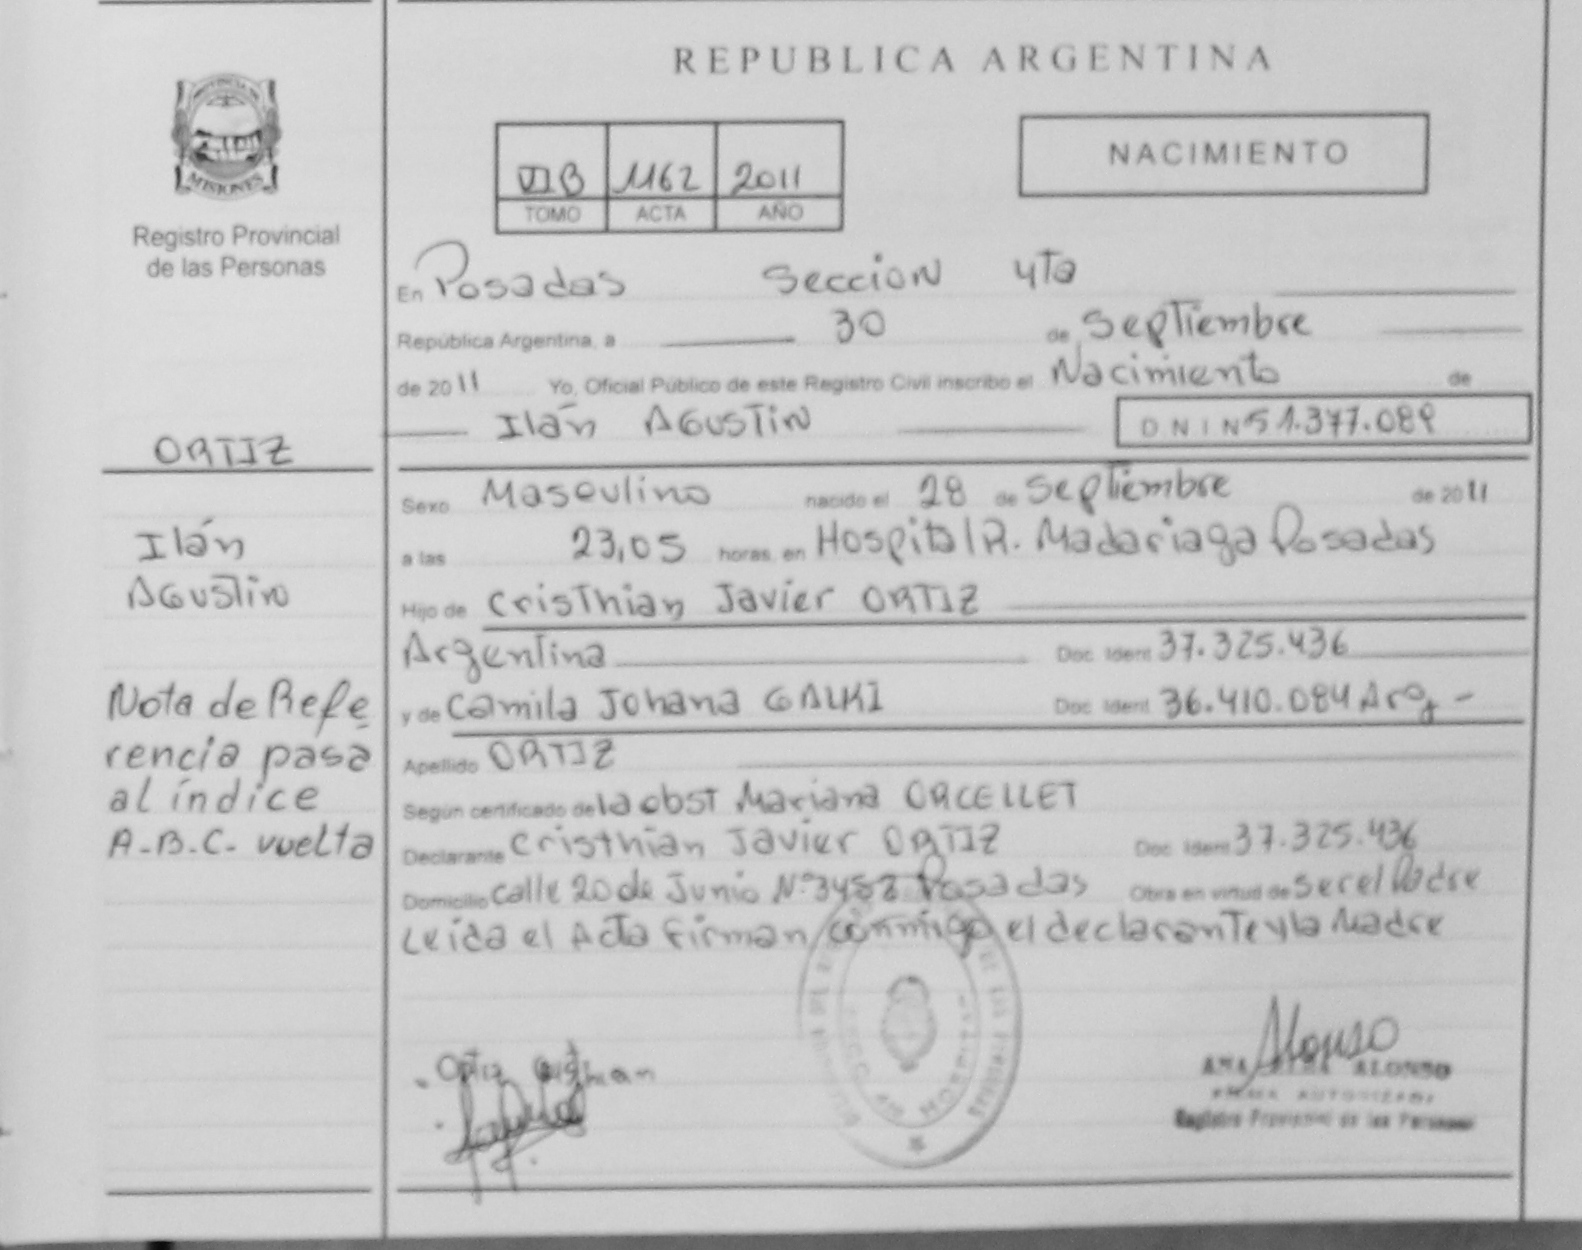 REPUBLICA ARGENTINA
MISIONES
Registro Provincial
de las Personas
VIB 1162 2011
TOMO ACTA AÑO
NACIMIENTO
En Posadas Seccion 4ta
República Argentina, a 30 de Septiembre
de 2011 Yo, Oficial Público de este Registro Civil inscribo el Nacimiento de
Ilán Agustin DNI N 51.377.089
ORTIZ
Ilán
Agustin
Sexo Masculino nacido el 28 de Septiembre de 2011
a las 23,05 horas, en Hospital R. Madariaga Posadas
Hijo de Cristhian Javier ORTIZ
Argentina Doc. Ident 37.325.436
y de Camila Johana GALKI Doc. Ident 36.410.084 Arg -
Apellido ORTIZ
Según certificado de la obst Mariana ORCELLET
Declarante Cristhian Javier ORTIZ Doc. Ident 37.325.436
Domicilio Calle 20 de Junio Nº Posadas Obra en virtud de Ser el Padre
Leida el Acta firman conmigo el declarante y la Madre
Nota de Refe
rencia pasa
al índice
A.B.C. vuelta
Ortiz
Alonso
ANA ALONSO
FIRMA AUTORIZADA
Registro Provincial de las Personas